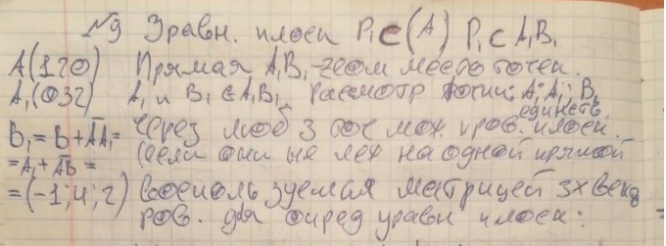 №9 Уравн. плоск P₁⊂(A) P₁⊂A₁B₁
A(120) Прямая A₁B₁ - геом место точек.
A₁(032) A₁ и B₁ ∈ A₁B₁. Рассмотр точки A; A₁; B₁
единств.
B₁ = B + AA₁ = Через люб 3 точ мож. пров. плоск.
= A₁ + AB = (если они не леж на одной прямой
= (-1; 4; 2) Воспользуемся матрицей 3х век
ров. для опред уравн плоск: